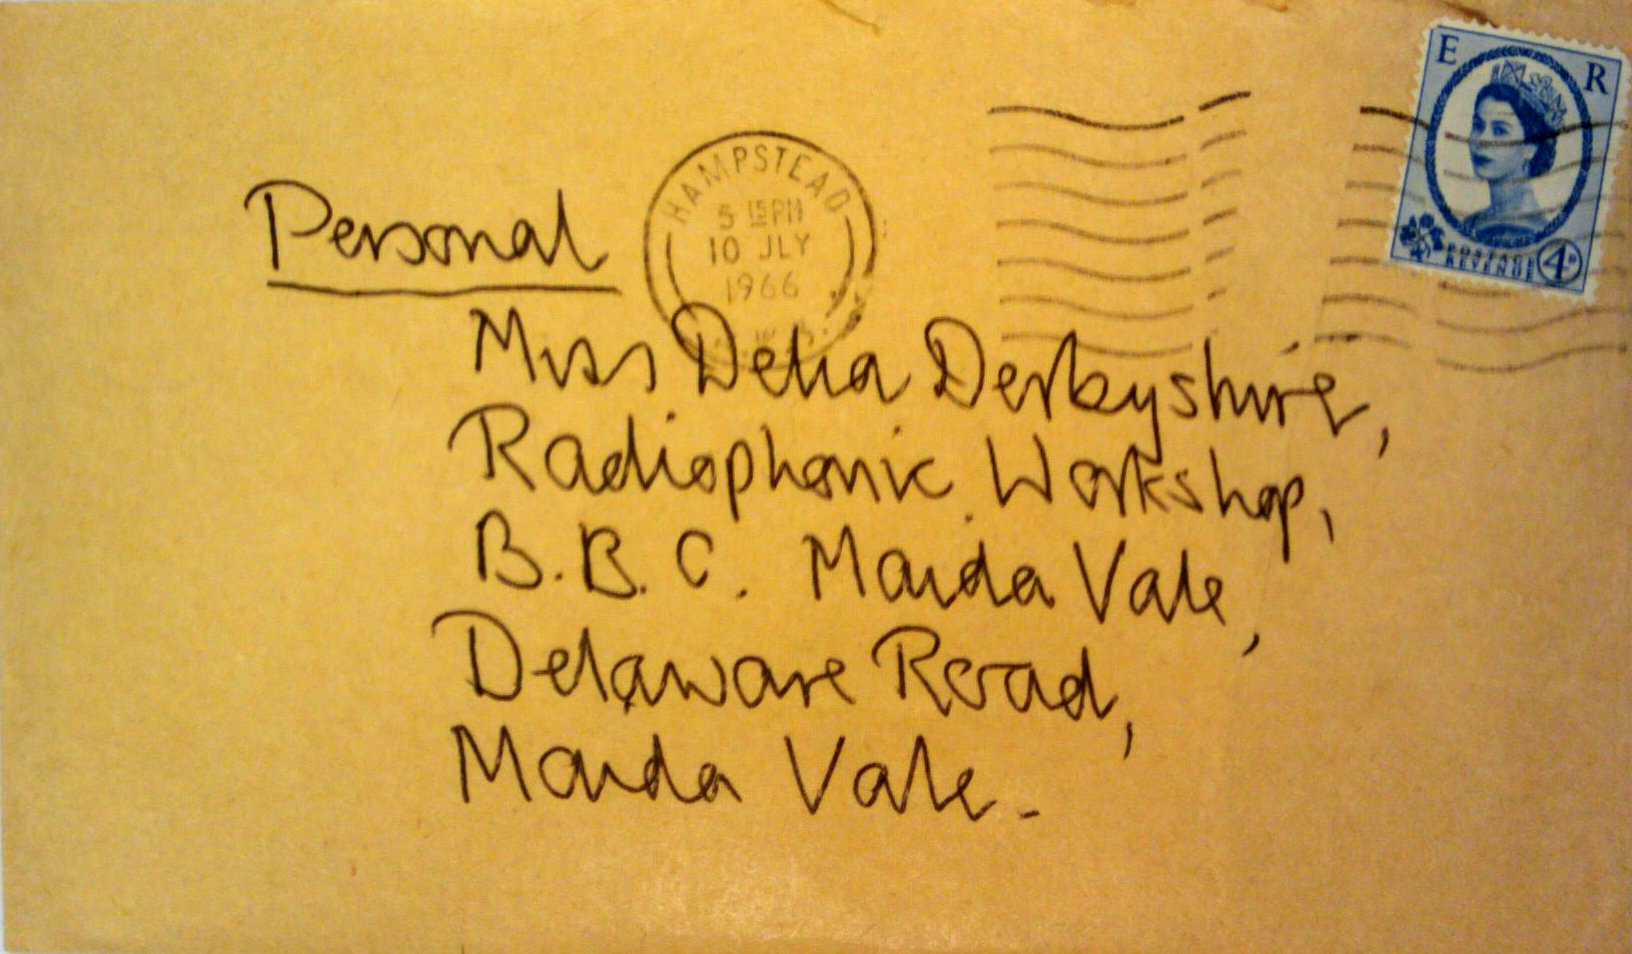 E R
HAMPSTEAD
5 15 PM
10 JLY
1966
POSTAGE
REVENUE
4D
Personal
Miss Delia Derbyshire,
Radiophonic Workshop,
B.B.C. Maida Vale,
Delaware Road,
Maida Vale.